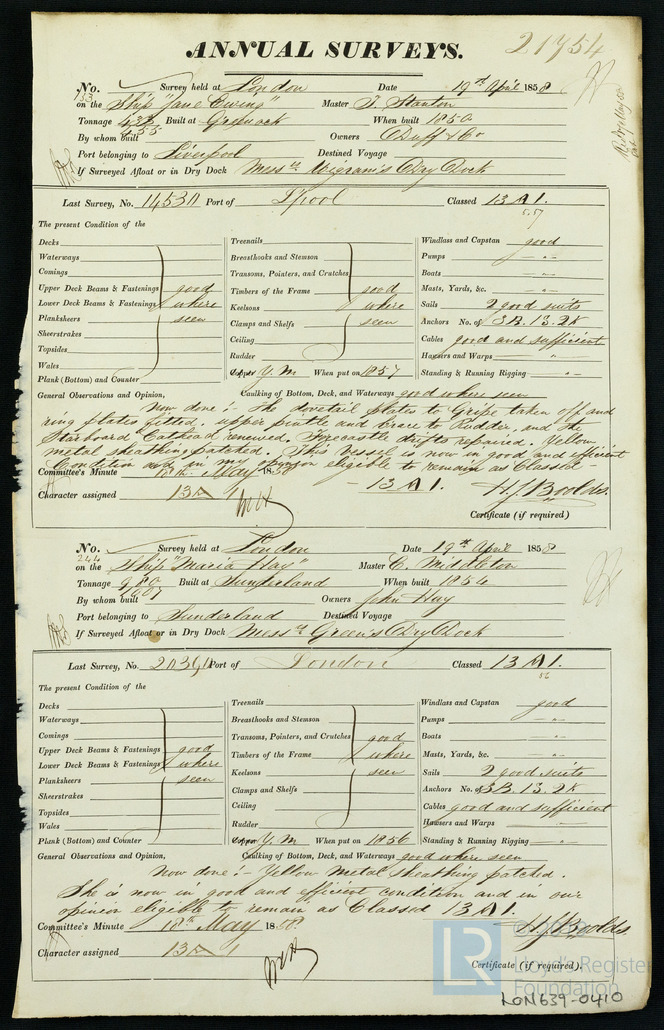 21754
ANNUAL SURVEYS.
No. 133 Survey held at London Date 19th April 1858
on the Ship "Jane Ewing" Master T. Stanton
Tonnage Built at Greenock When built 1850
By whom built Owners Duff & Co
Port belonging to Liverpool Destined Voyage
If Surveyed Afloat or in Dry Dock Messrs Wigram's Dry Dock
Last Survey, No. 14530 Port of L'pool Classed 13 A 1.
5.57
The present Condition of the
Decks Treenails Windlass and Capstan good
Waterways Breasthooks and Stemson Pumps -"-
Comings Transoms, Pointers, and Crutches Boats -"-
Upper Deck Beams & Fastenings good Timbers of the Frame good Masts, Yards, &c. -"-
Lower Deck Beams & Fastenings where Keelsons where Sails 2 good suits
Planksheers seen Clamps and Shelfs seen Anchors No. of 3B. 1S. 2K
Sheerstrakes Ceiling Cables good and sufficient
Topsides Rudder Hawsers and Warps "
Wales Copper Y. M When put on 1857 Standing & Running Rigging -"-
Plank (Bottom) and Counter
General Observations and Opinion, Caulking of Bottom, Deck, and Waterways good where seen
Now done :- The dovetail plates to Gripe taken off and
ring plates fitted, upper pintle and brace to Rudder, and the
Starboard Cathead renewed. Forecastle drifts repaired. Yellow
metal sheathing patched. This vessel is now in good and efficient
Condition and in my opinion eligible to remain as Classed -
Committee's Minute 18th May 1858
- 13 A 1. H. J. Boolds.
Character assigned 13 A 1
Certificate (if required)
No. 244 Survey held at London Date 19th April 1858
on the Ship "Maria Hay" Master C. Middleton
Tonnage 980 Built at Sunderland When built 1854
By whom built 1007 Owners John Hay
Port belonging to Sunderland Destined Voyage
If Surveyed Afloat or in Dry Dock Messrs Green's Dry Dock
Last Survey, No. Port of London Classed 13 A 1.
56
The present Condition of the
Decks Treenails Windlass and Capstan good
Waterways Breasthooks and Stemson Pumps -"-
Comings Transoms, Pointers, and Crutches good Boats -"-
Upper Deck Beams & Fastenings good Timbers of the Frame where Masts, Yards, &c. -"-
Lower Deck Beams & Fastenings where Keelsons seen Sails 2 good suits
Planksheers seen Clamps and Shelfs Anchors No. of 3B. 1S. 2K
Sheerstrakes Ceiling Cables good and sufficient
Topsides Rudder Hawsers and Warps -"-
Wales Copper Y. M When put on 1856 Standing & Running Rigging -"-
Plank (Bottom) and Counter
General Observations and Opinion, Caulking of Bottom, Deck, and Waterways good where seen
Now done :- Yellow Metal sheathing patched.
She is now in good and efficient condition and in our
opinion eligible to remain as Classed 13 A 1.
Committee's Minute 18th May 1858 H. J. Boolds
Character assigned 13 A 1
Certificate (if required).
LR
Lloyd's Register
Foundation
LON639-0410